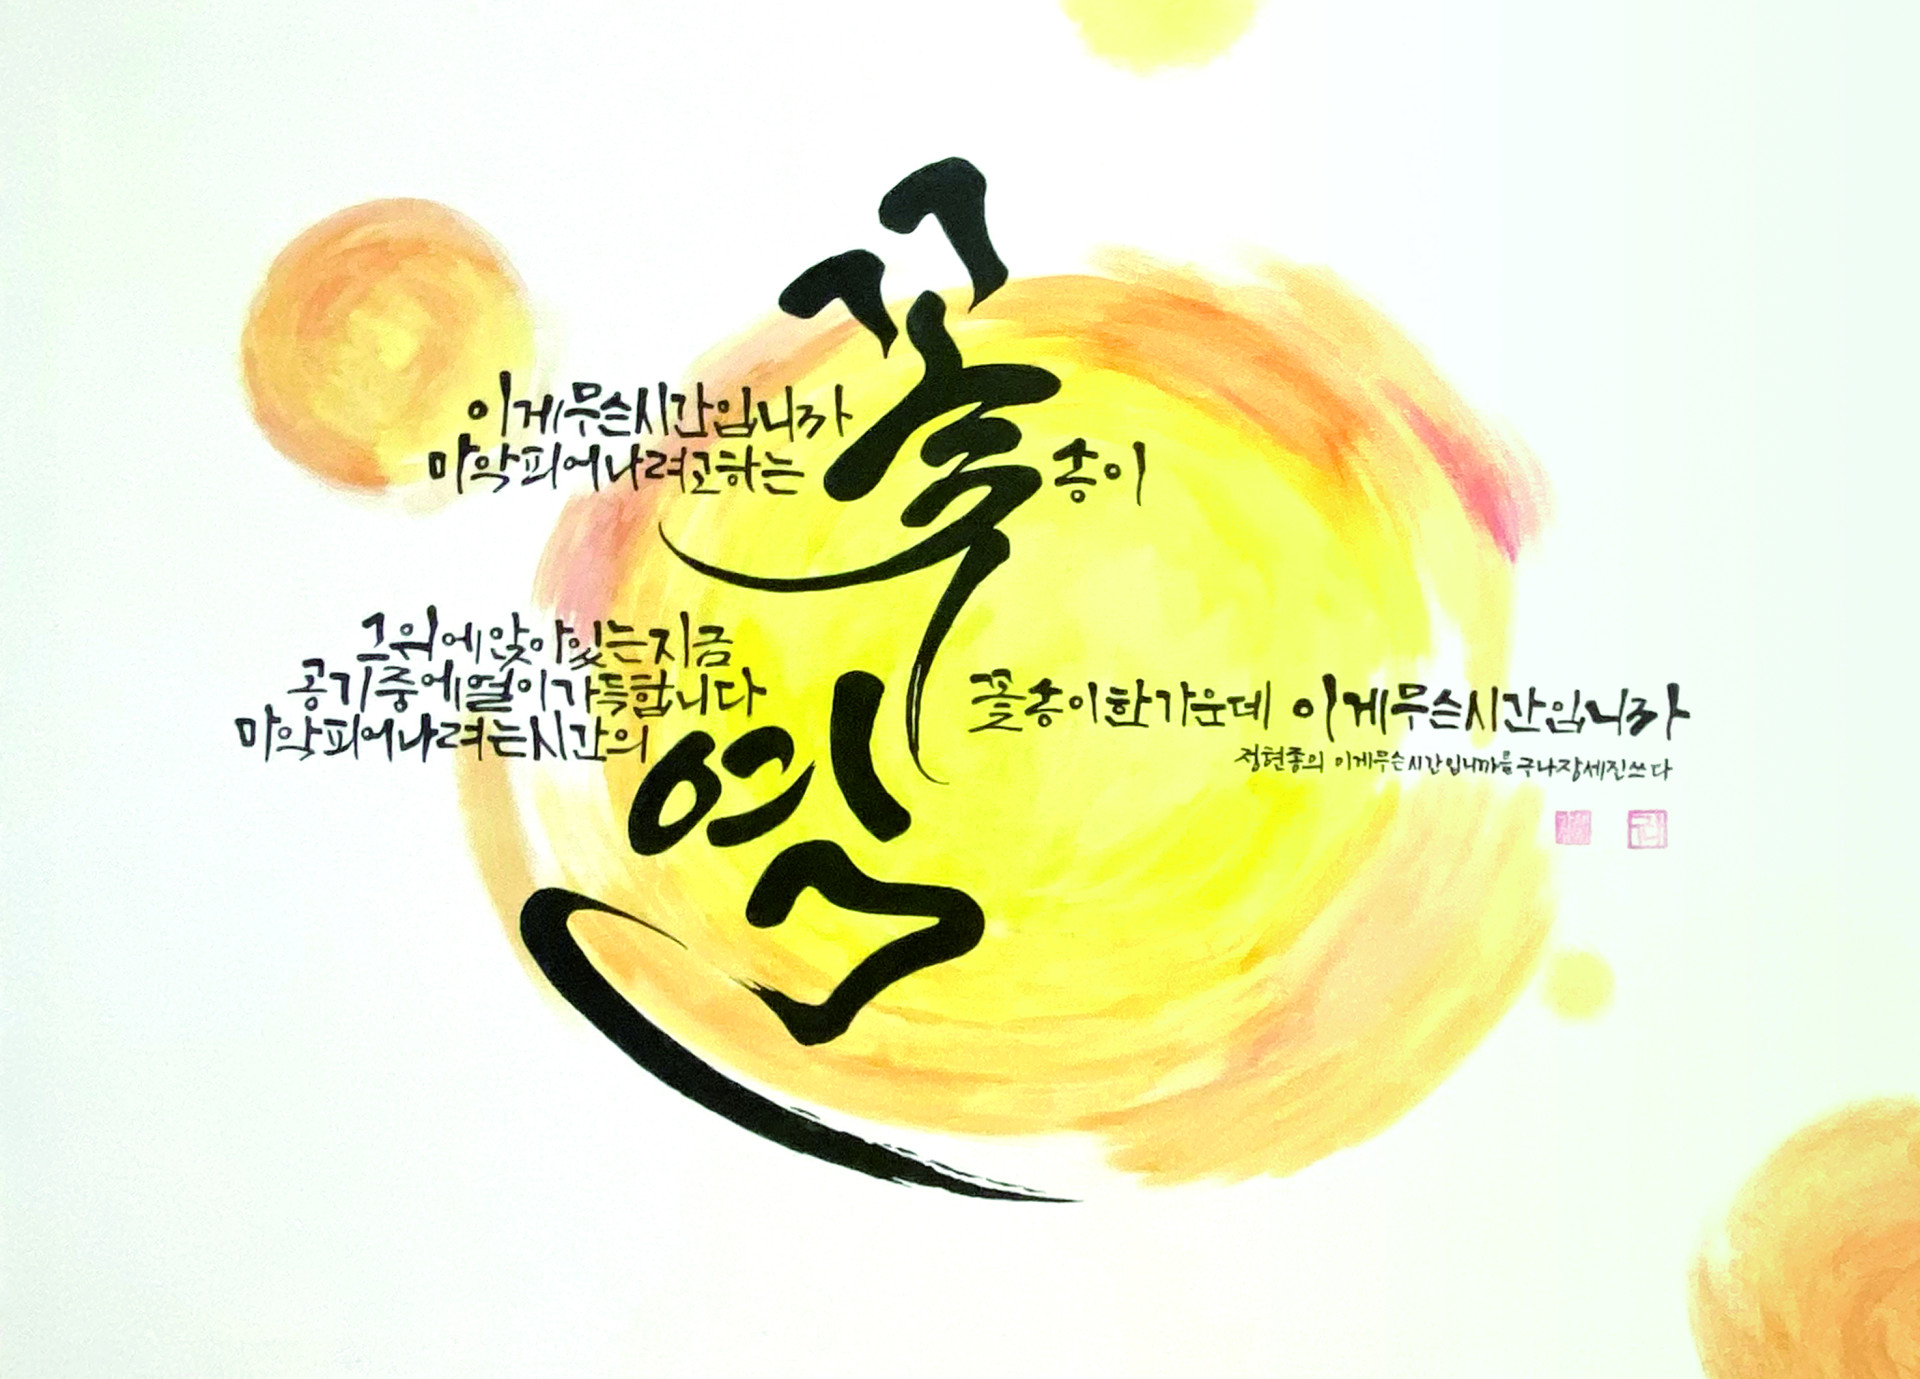 이게무슨시간입니까
마악피어나려고하는 꽃송이
그위에앉아있는지금
공기중에열이가득합니다
마악피어나려는시간의 열
꽃송이한가운데 이게무슨시간입니까
정현종의 이게무슨시간입니까를 구나장세진쓰다